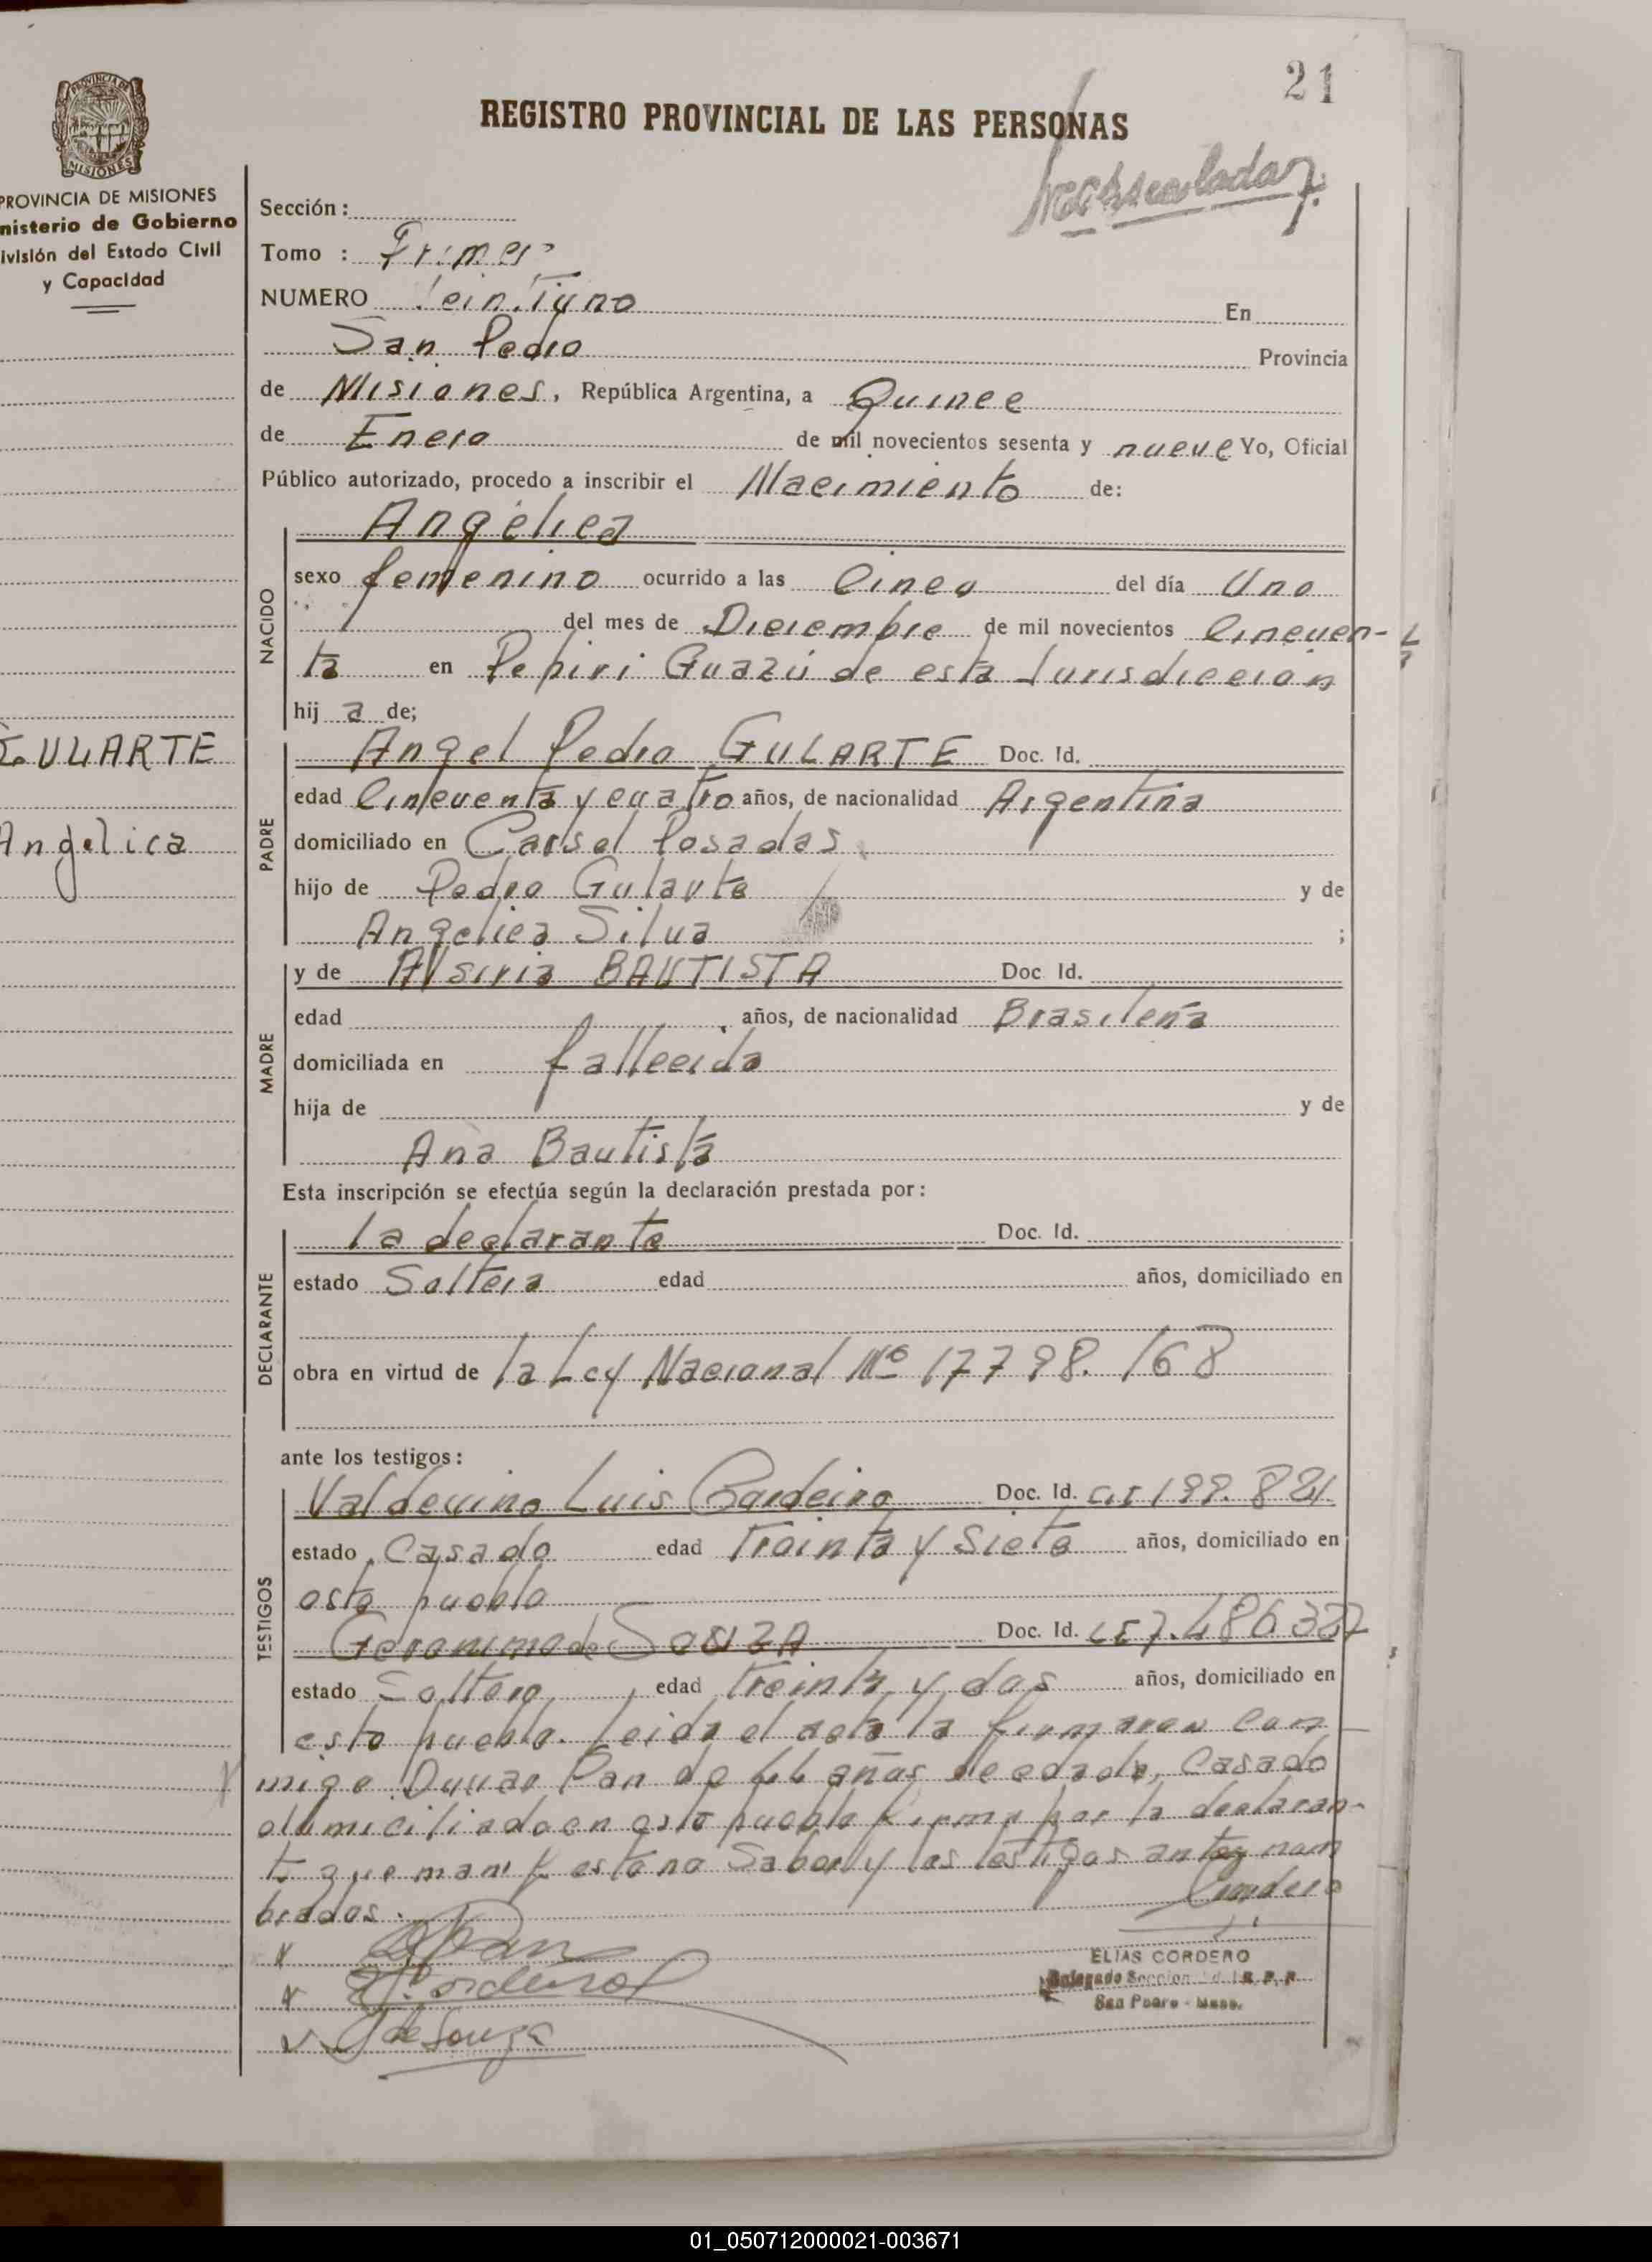 21
REGISTRO PROVINCIAL DE LAS PERSONAS
PROVINCIA DE
MISIONES
PROVINCIA DE MISIONES
nisterio de Gobierno
ivisión del Estado Civil
y Capacidad
Sección:
Tomo : Primero
NUMERO Veintiuno En
San Pedro Provincia
de Misiones, República Argentina, a Quince
de Enero de mil novecientos sesenta y nueve Yo, Oficial
Público autorizado, procedo a inscribir el Nacimiento de:
Angélica
NACIDO
sexo femenino ocurrido a las Cinco del día Uno
del mes de Diciembre de mil novecientos Cincuen-
ta en Pepiri Guazú de esta Jurisdiccion
hij a de;
GULARTE
Angelica
PADRE
Angel Pedro GULARTE Doc. Id.
edad Cincuenta y cuatro años, de nacionalidad Argentina
domiciliado en Carsel Posadas
hijo de Pedro Gularte y de
Angelica Silva ;
MADRE
y de Alsiria BAUTISTA Doc. Id.
edad , años, de nacionalidad Brasileña
domiciliada en fallecida
hija de y de
Ana Bautista
Esta inscripción se efectúa según la declaración prestada por:
DECLARANTE
la declarante Doc. Id.
estado Soltera edad años, domiciliado en
obra en virtud de la Ley Nacional Nº 17798. /68
ante los testigos:
TESTIGOS
Valdevino Luis Doc. Id.
estado Casado edad Treinta y Siete años, domiciliado en
este pueblo
Geronimo de SOUZA Doc. Id.
estado Soltero edad treinta y dos años, domiciliado en
este pueblo. Leida el acta la firmaron con
migo Pan de años de edad, Casado
domiciliado en este pueblo firma por la declaran-
te que manifesto no Saber y los testigos antes nom
brados.
de Souza
ELIAS CORDERO
Delegado Seccion R.P.P.
San Pedro - Mnes.
01_050712000021-003671